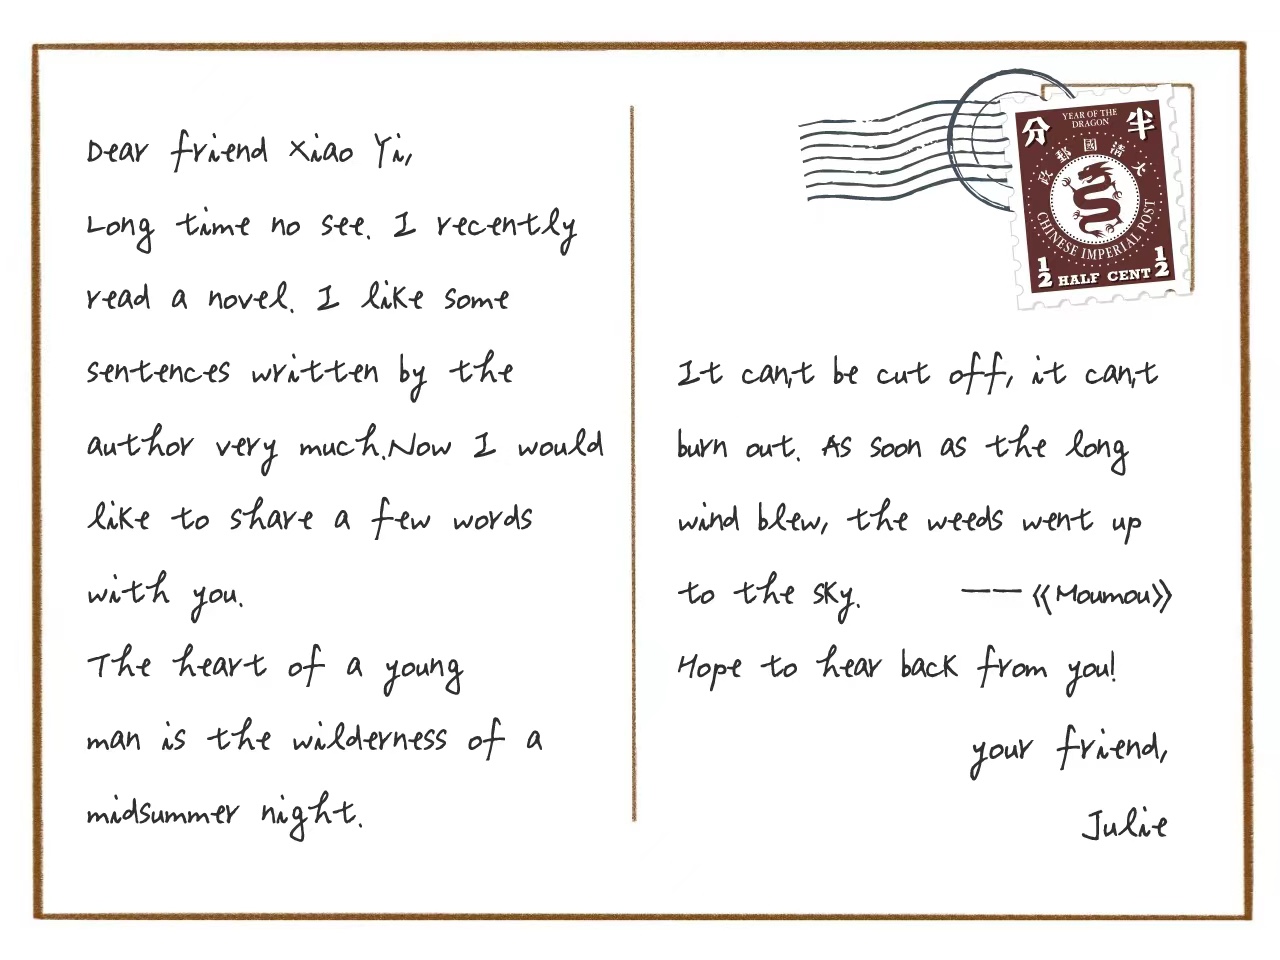 Dear friend Xiao Yi,
Long time no see. I recently
read a novel. I like some
sentences written by the
author very much.Now I would
like to share a few words
with you.
The heart of a young
man is the wilderness of a
midsummer night.
分 YEAR OF THE 半
DRAGON
政郵國清大
CHINESE IMPERIAL POST
1/2 HALF CENT 1/2
It can,t be cut off, it can,t
burn out. As soon as the long
wind blew, the weeds went up
to the sky. ——《Moumou》
Hope to hear back from you!
your friend,
Julie